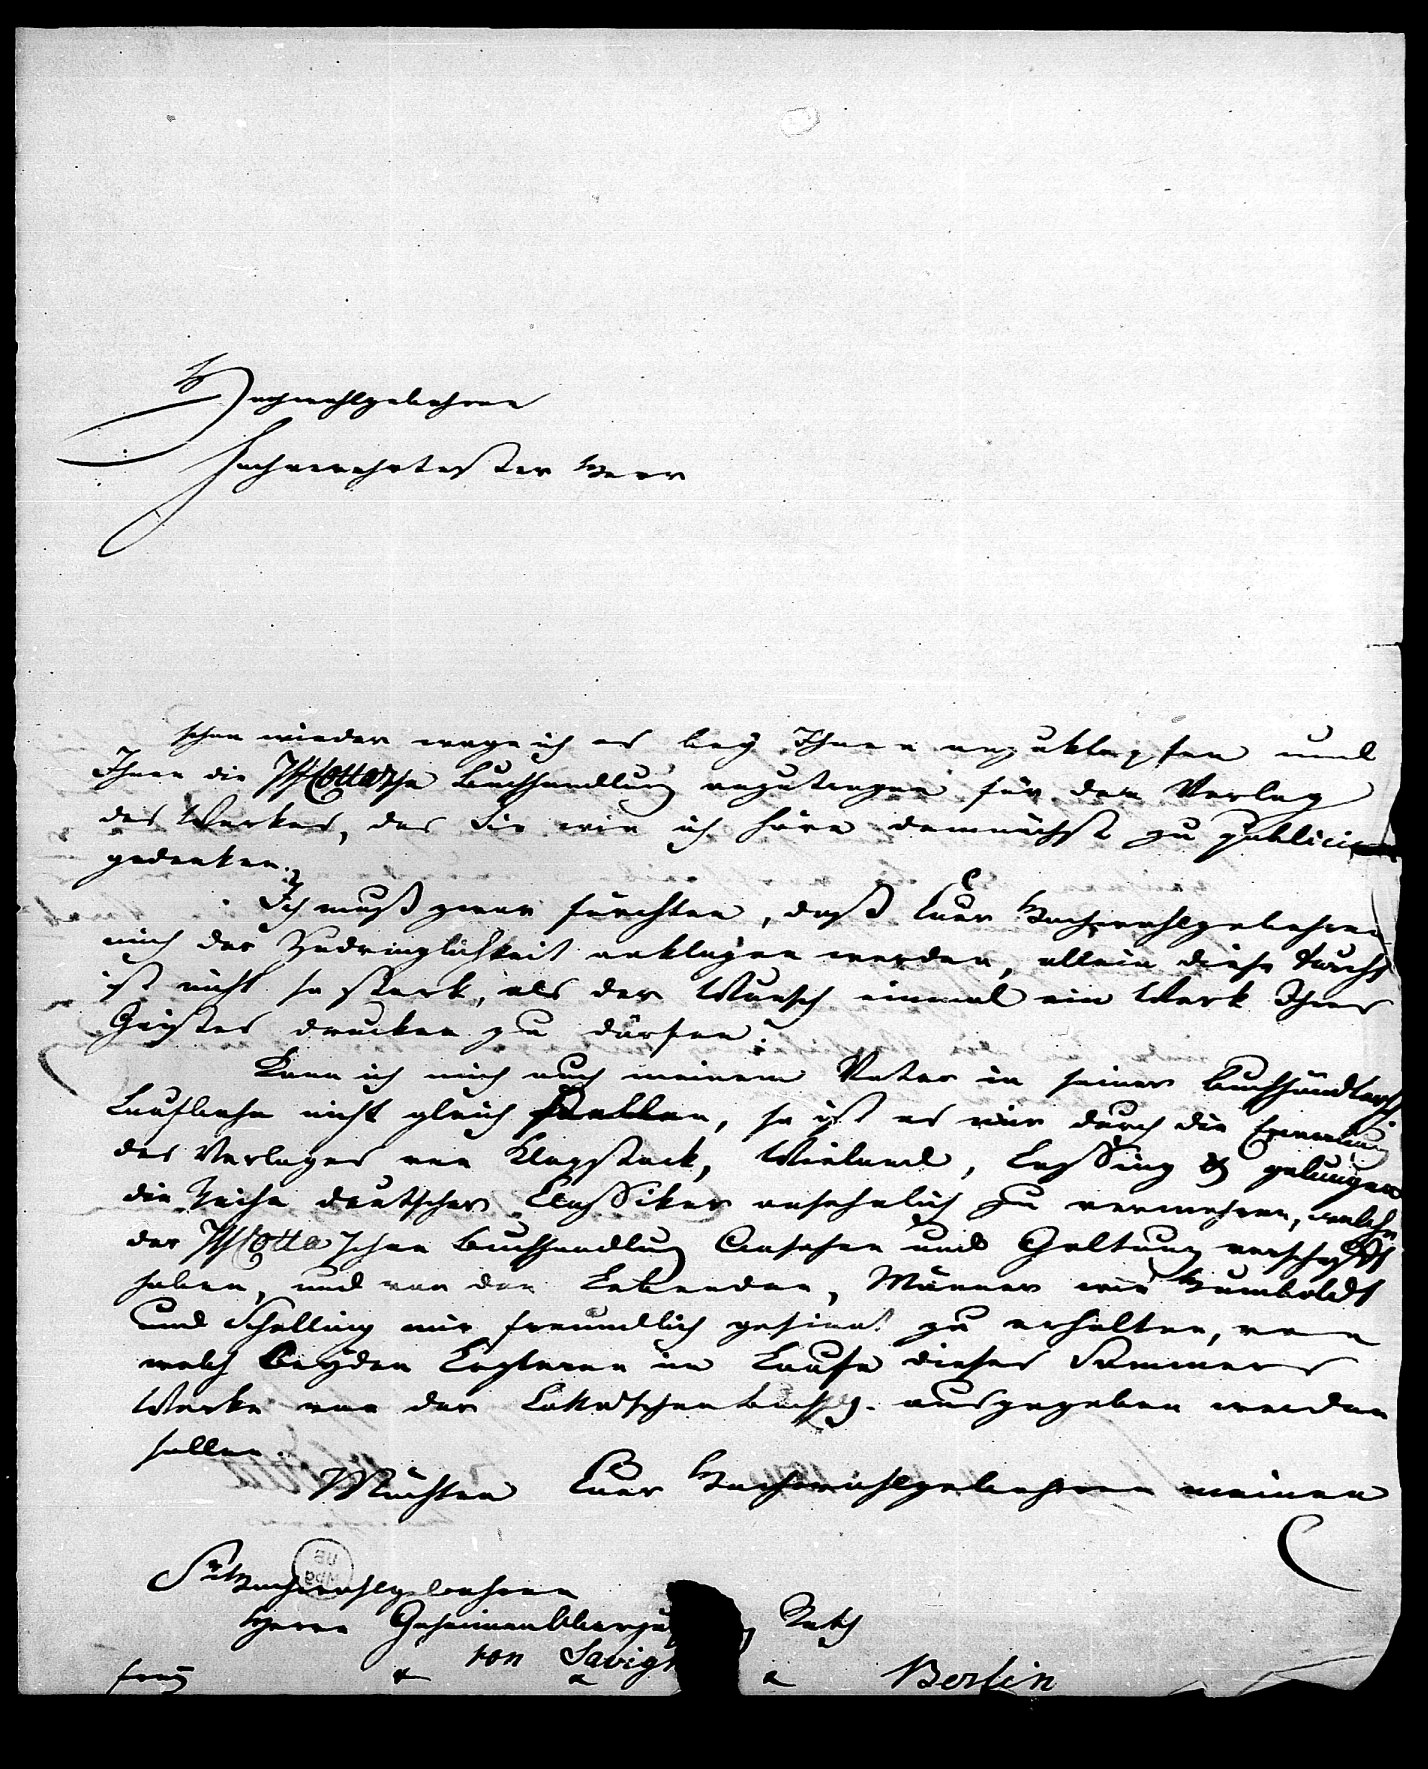 Hochwohlgebohrner
Hochverehrtester Herr
schon wieder wage ich es bey Ihnen anzuklopfen und
Ihnen die JGCottasche Buchhandlung anzutragen für den Verlag
des Werkes, das Sie wie ich höre demnächst zu publiciren
gedenken.
Ich muß zwar fürchten, daß Euer Hochwohlgebohren
mich der Zudringlichkeit anklagen werden, allein diese Furcht
ist nicht so stark, als der Wunsch einmal ein Werk Ihres
Geistes drucken zu dürfen.
Kann ich mich auch meinem Vater in seiner buchhändlerisch.
Laufbahn nicht gleich stellen, so ist es mir durch die Erwerbung
des Verlages von Klopstock, Wieland, Lessing & gelungen
die Reihe deutscher Classiker ansehnlich zu vermehren, welche
der JGCotta'schen Buchhandlung Ansehen und Geltung verschafft
haben, und von den Lebenden, Männer wie Humboldt
und Schelling mir freundlich gesinnt zu erhalten, von
welch beyden Letzteren im Laufe dieses Sommers
Werke von der Cotta'schen Buchhdlg. ausgegeben werden
sollen.
Möchten Euer Hochwohlgebohren meinen
Sr Hochwohlgebohren
Herrn Geheimen Oberju Rath
von Savign a Berlin
frey